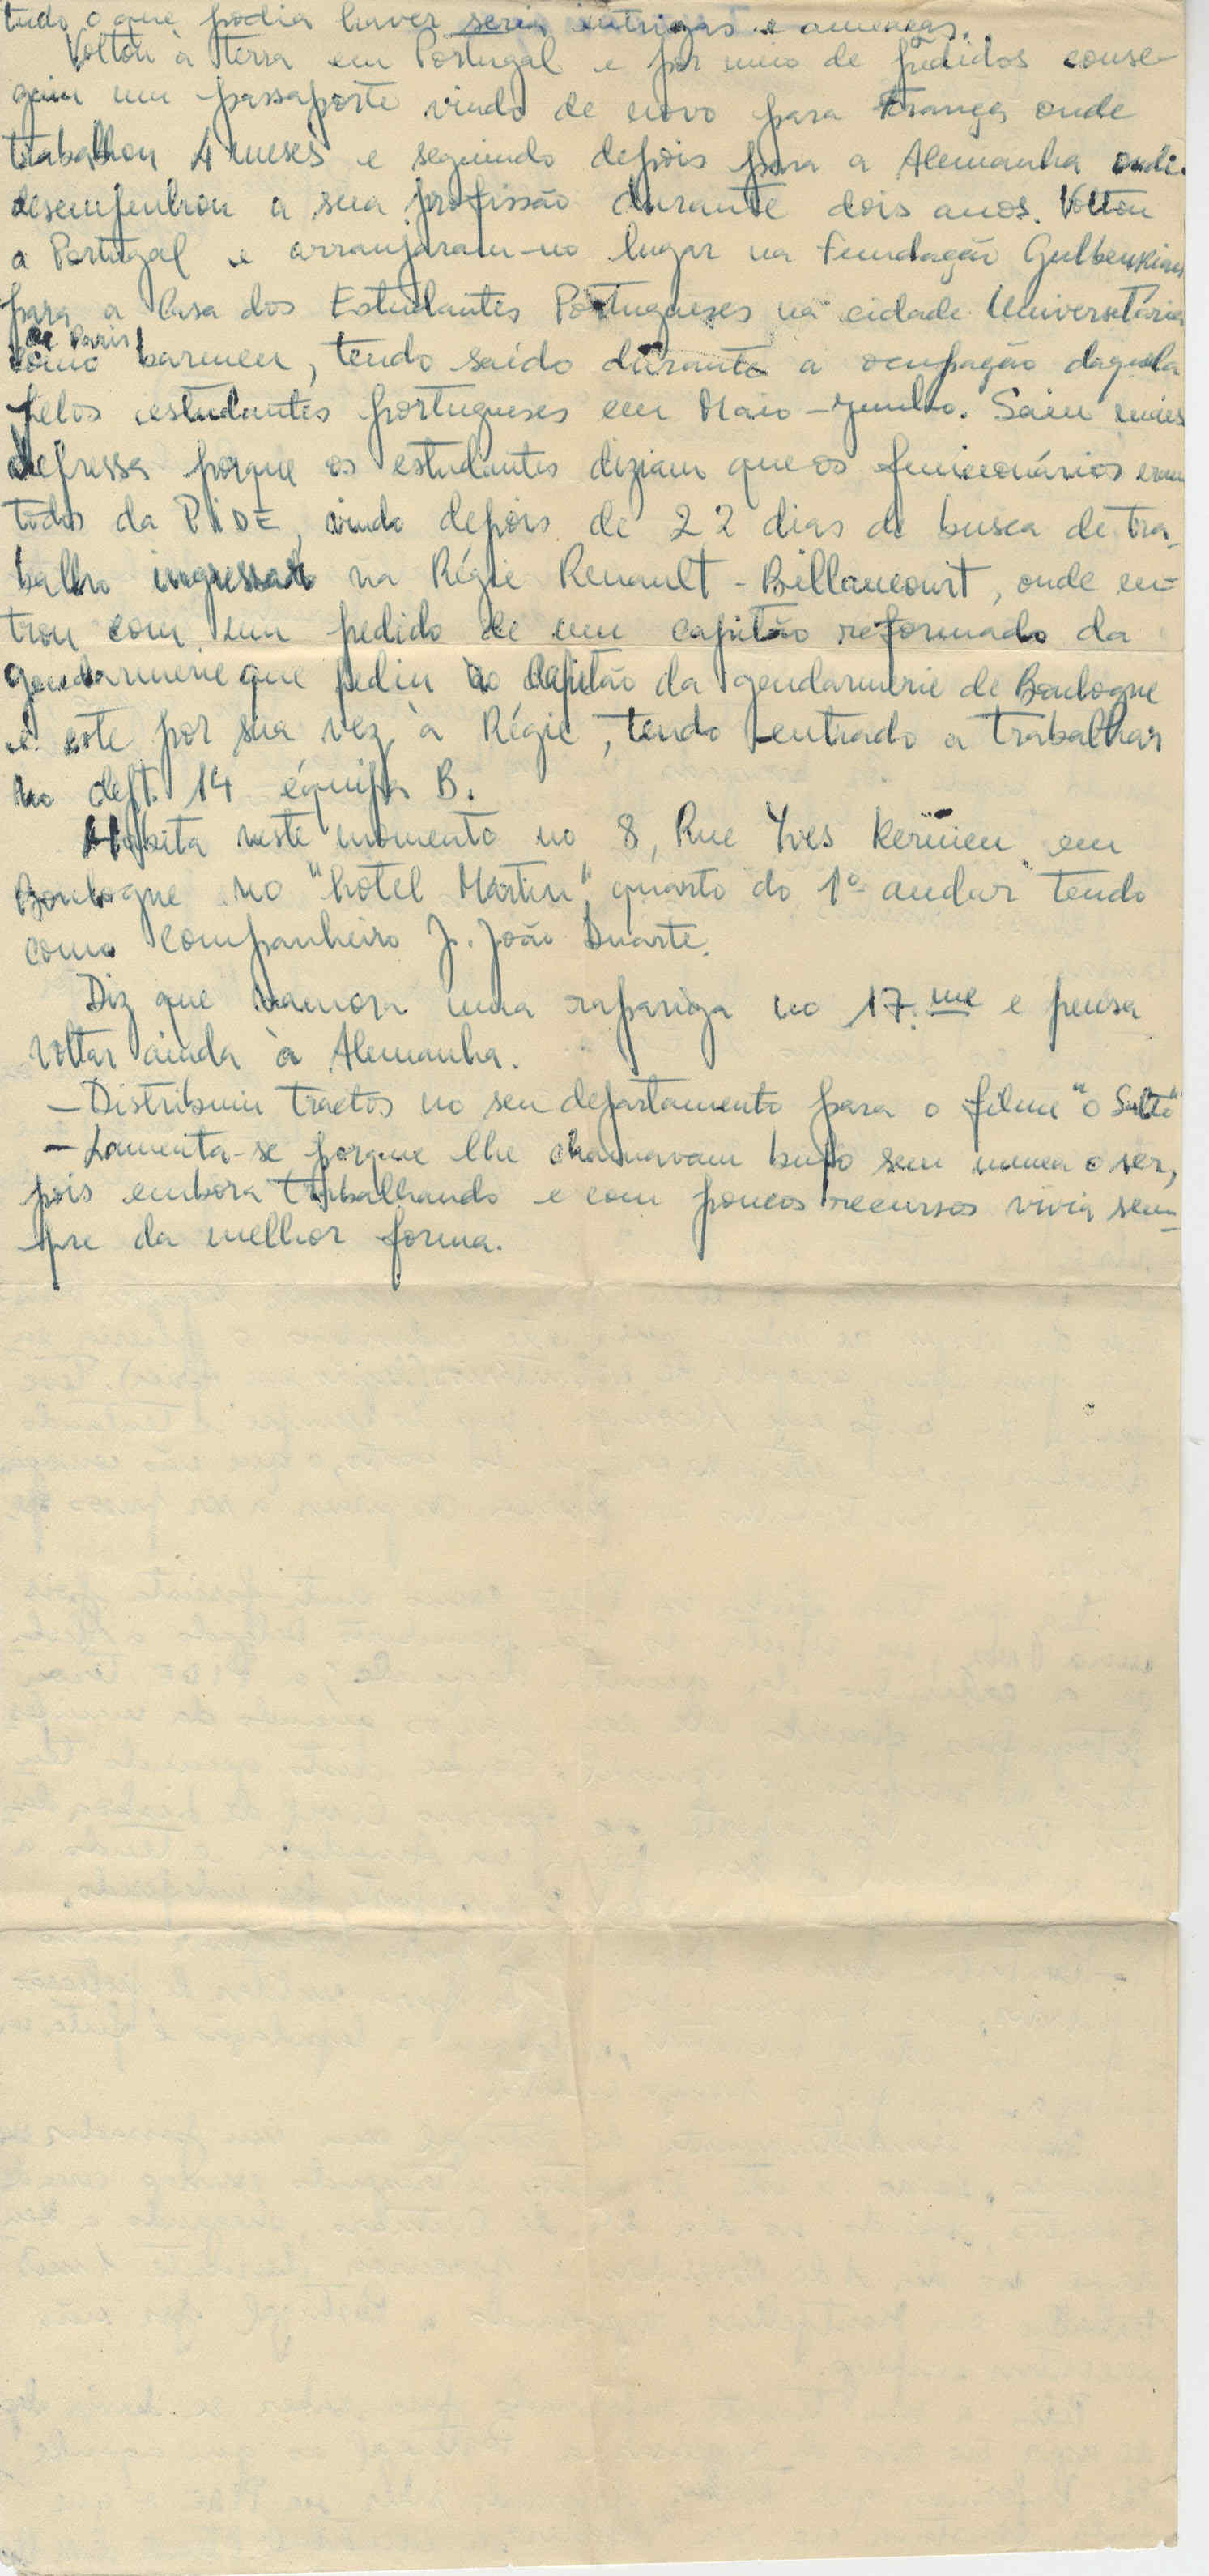 tudo o que podia haver seria intrigas e ameaças.
Voltou à terra em Portugal e por meio de pedidos conse-
guiu um passaporte vindo de novo para França onde
trabalhou 4 meses e seguindo depois para a Alemanha onde
desempenhou a sua profissão durante dois anos. Voltou
a Portugal e arranjaram-no lugar na Fundação Gulbenkian
para a Casa dos Estudantes Portugueses na cidade Universitária
de Paris
como barmen, tendo saído durante a ocupação daquela
pelos estudantes portugueses em Maio-Junho. Saiu mais
depressa porque os estudantes diziam que os funcionários eram
todos da PIDE, vindo depois de 22 dias de busca de tra-
balho ingressar na Régie Renault-Billancourt, onde en-
trou com um pedido de um capitão reformado da
gendarmerie que pediu ao capitão da gendarmerie de Boulogne
e este por sua vez à Régie, tendo entrado a trabalhar
no dept. 14 équipa B.
Habita neste momento no 8, Rue Yves Kermen em
Boulogne no "hotel Martin", quarto do 1º andar tendo
como companheiro J. João Duarte.
Diz que namora uma rapariga no 17.me e pensa
voltar ainda à Alemanha.
- Distribuiu tractos no seu departamento para o filme "O Salto"
- Lamenta-se porque lhe chamavam bufo sem nunca o ser,
pois embora trabalhando e com poucos recursos vivia sem-
pre da melhor forma.